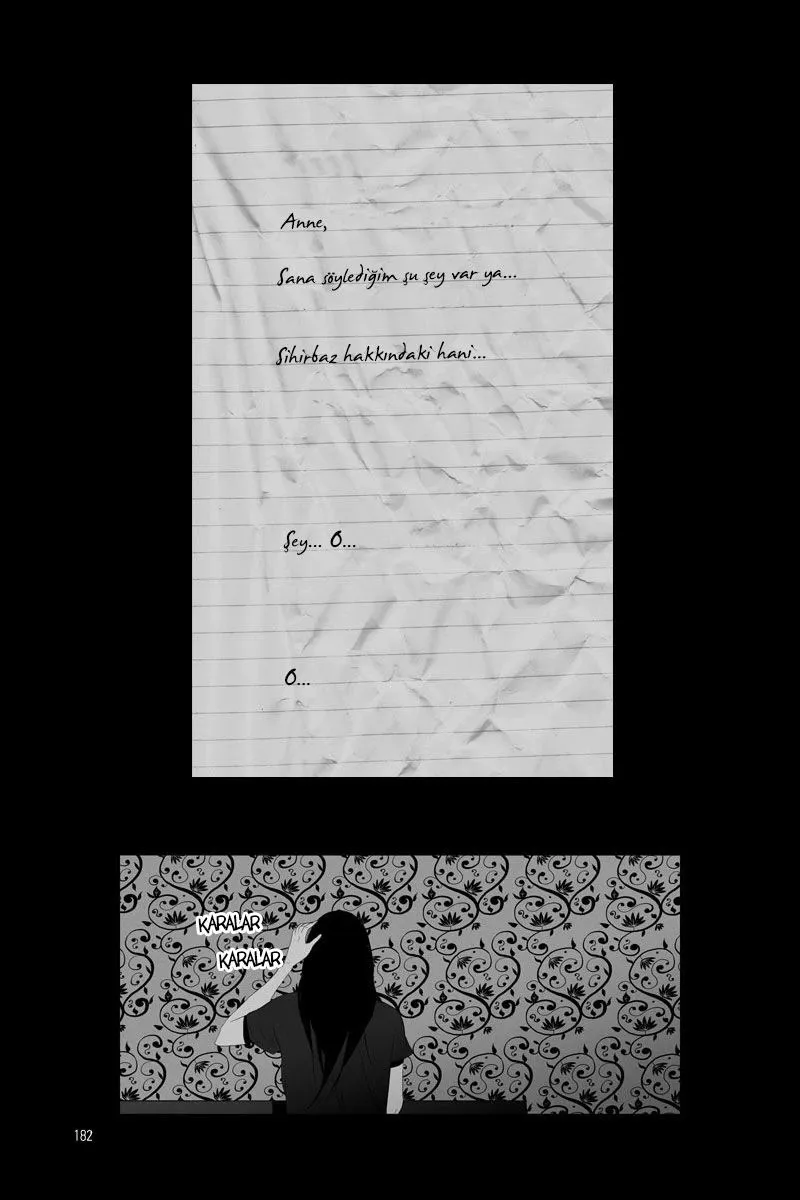 Anne,
Sana söylediğim şu şey var ya...
Sihirbaz hakkındaki hani...
Şey... O...
O...
KARALAR
KARALAR
182